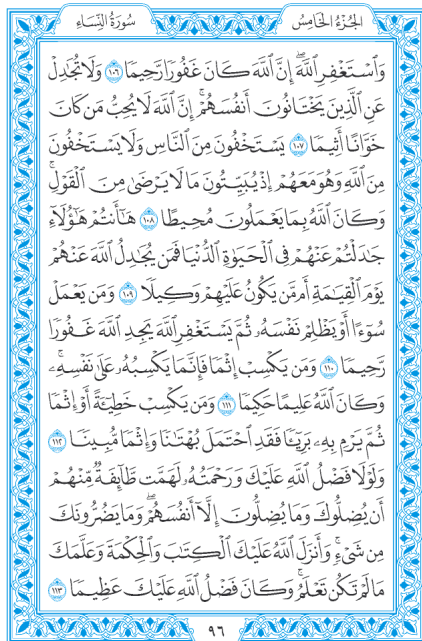 الجُزْءُ الخَامِسُ
سُورَةُ النِّسَاءِ
وَاسْتَغْفِرِ اللَّهَ ۖ إِنَّ اللَّهَ كَانَ غَفُورًا رَّحِيمًا ١٠٦ وَلَا تُجَادِلْ
عَنِ الَّذِينَ يَخْتَانُونَ أَنفُسَهُمْ ۚ إِنَّ اللَّهَ لَا يُحِبُّ مَن كَانَ
خَوَّانًا أَثِيمًا ١٠٧ يَسْتَخْفُونَ مِنَ النَّاسِ وَلَا يَسْتَخْفُونَ
مِنَ اللَّهِ وَهُوَ مَعَهُمْ إِذْ يُبَيِّتُونَ مَا لَا يَرْضَىٰ مِنَ الْقَوْلِ ۚ
وَكَانَ اللَّهُ بِمَا يَعْمَلُونَ مُحِيطًا ١٠٨ هَٰٓأَنتُمْ هَٰٓؤُلَآءِ
جَٰدَلْتُمْ عَنْهُمْ فِي الْحَيَوٰةِ الدُّنْيَا فَمَن يُجَٰدِلُ اللَّهَ عَنْهُمْ
يَوْمَ الْقِيَٰمَةِ أَم مَّن يَكُونُ عَلَيْهِمْ وَكِيلًا ١٠٩ وَمَن يَعْمَلْ
سُوٓءًا أَوْ يَظْلِمْ نَفْسَهُۥ ثُمَّ يَسْتَغْفِرِ اللَّهَ يَجِدِ اللَّهَ غَفُورًا
رَّحِيمًا ١١٠ وَمَن يَكْسِبْ إِثْمًا فَإِنَّمَا يَكْسِبُهُۥ عَلَىٰ نَفْسِهِۦ ۚ
وَكَانَ اللَّهُ عَلِيمًا حَكِيمًا ١١١ وَمَن يَكْسِبْ خَطِيٓـَٔةً أَوْ إِثْمًا
ثُمَّ يَرْمِ بِهِۦ بَرِيٓـًٔا فَقَدِ احْتَمَلَ بُهْتَٰنًا وَإِثْمًا مُّبِينًا ١١٢
وَلَوْلَا فَضْلُ اللَّهِ عَلَيْكَ وَرَحْمَتُهُۥ لَهَمَّت طَّآئِفَةٌ مِّنْهُمْ
أَن يُضِلُّوكَ وَمَا يُضِلُّونَ إِلَّآ أَنفُسَهُمْ ۖ وَمَا يَضُرُّونَكَ
مِن شَيْءٍ ۚ وَأَنزَلَ اللَّهُ عَلَيْكَ الْكِتَٰبَ وَالْحِكْمَةَ وَعَلَّمَكَ
مَا لَمْ تَكُن تَعْلَمُ ۚ وَكَانَ فَضْلُ اللَّهِ عَلَيْكَ عَظِيمًا ١١٣
٩٦